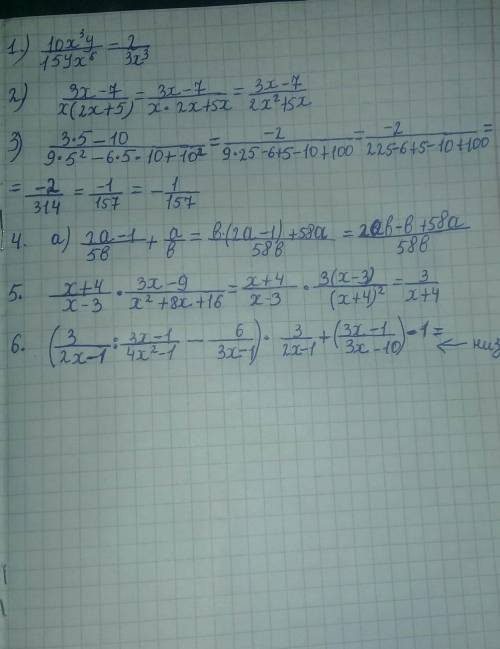 1.) 10x³y/15yx⁶ = 2/3x³
2) 3x-7/x(2x+5) = 3x-7/x·2x+5x = 3x-7/2x²+5x
3) 3·5-10/9·5²-6·5-10+10² = -2/9·25-6+5-10+100 = -2/225-6+5-10+100 =
= -2/314 = -1/157 = -1/157
4. а) 2a-1/5b + a/b = b·(2a-1)+58a/58b = 2ab-b+58a/58b
5. x+4/x-3 · 3x-9/x²+8x+16 = x+4/x-3 · 3(x-3)/(x+4)² = 3/x+4
6. (3/2x-1 : 3x-1/4x²-1 - 6/3x-1) · 3/2x-1 + (3x-1/3x-10) · 1 = ← низ